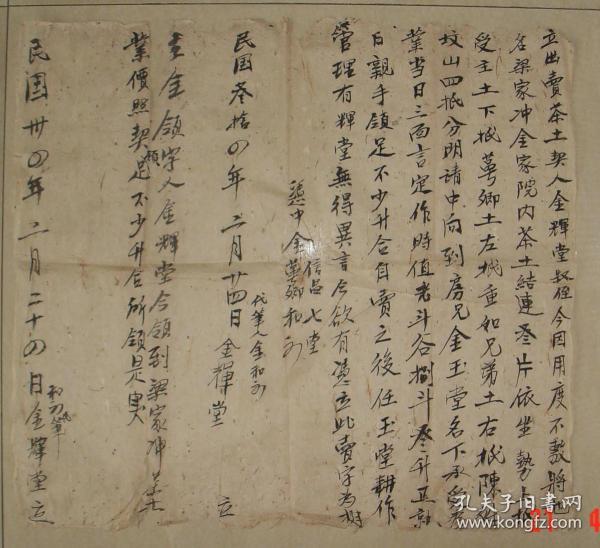 立出賣茶土契人金輝堂叔侄今因用度不敷將地
名梁家冲金家院内茶土結連叁片依坐勢上抵
受主土下抵萼卿土左抵重如兄弟土右抵陳
坟山四抵分明請中向到房兄金玉堂名下承受為
業當日三面言定作時值老斗谷捌斗叁升正就
日親手領足不少升合自賣之後任玉堂耕作
管理有輝堂無得異言今欲有憑立此賣字為
信占 七堂
憑中金萼卿和
民国叁拾四年二月廿四日金輝堂 立
代筆人金和
立全領字人金輝堂今領到梁家冲茶土
業價照契領足不少升合所領是實
民国卅四年二月二十四日金輝堂立
孔夫子旧书网
www.kongfz.com